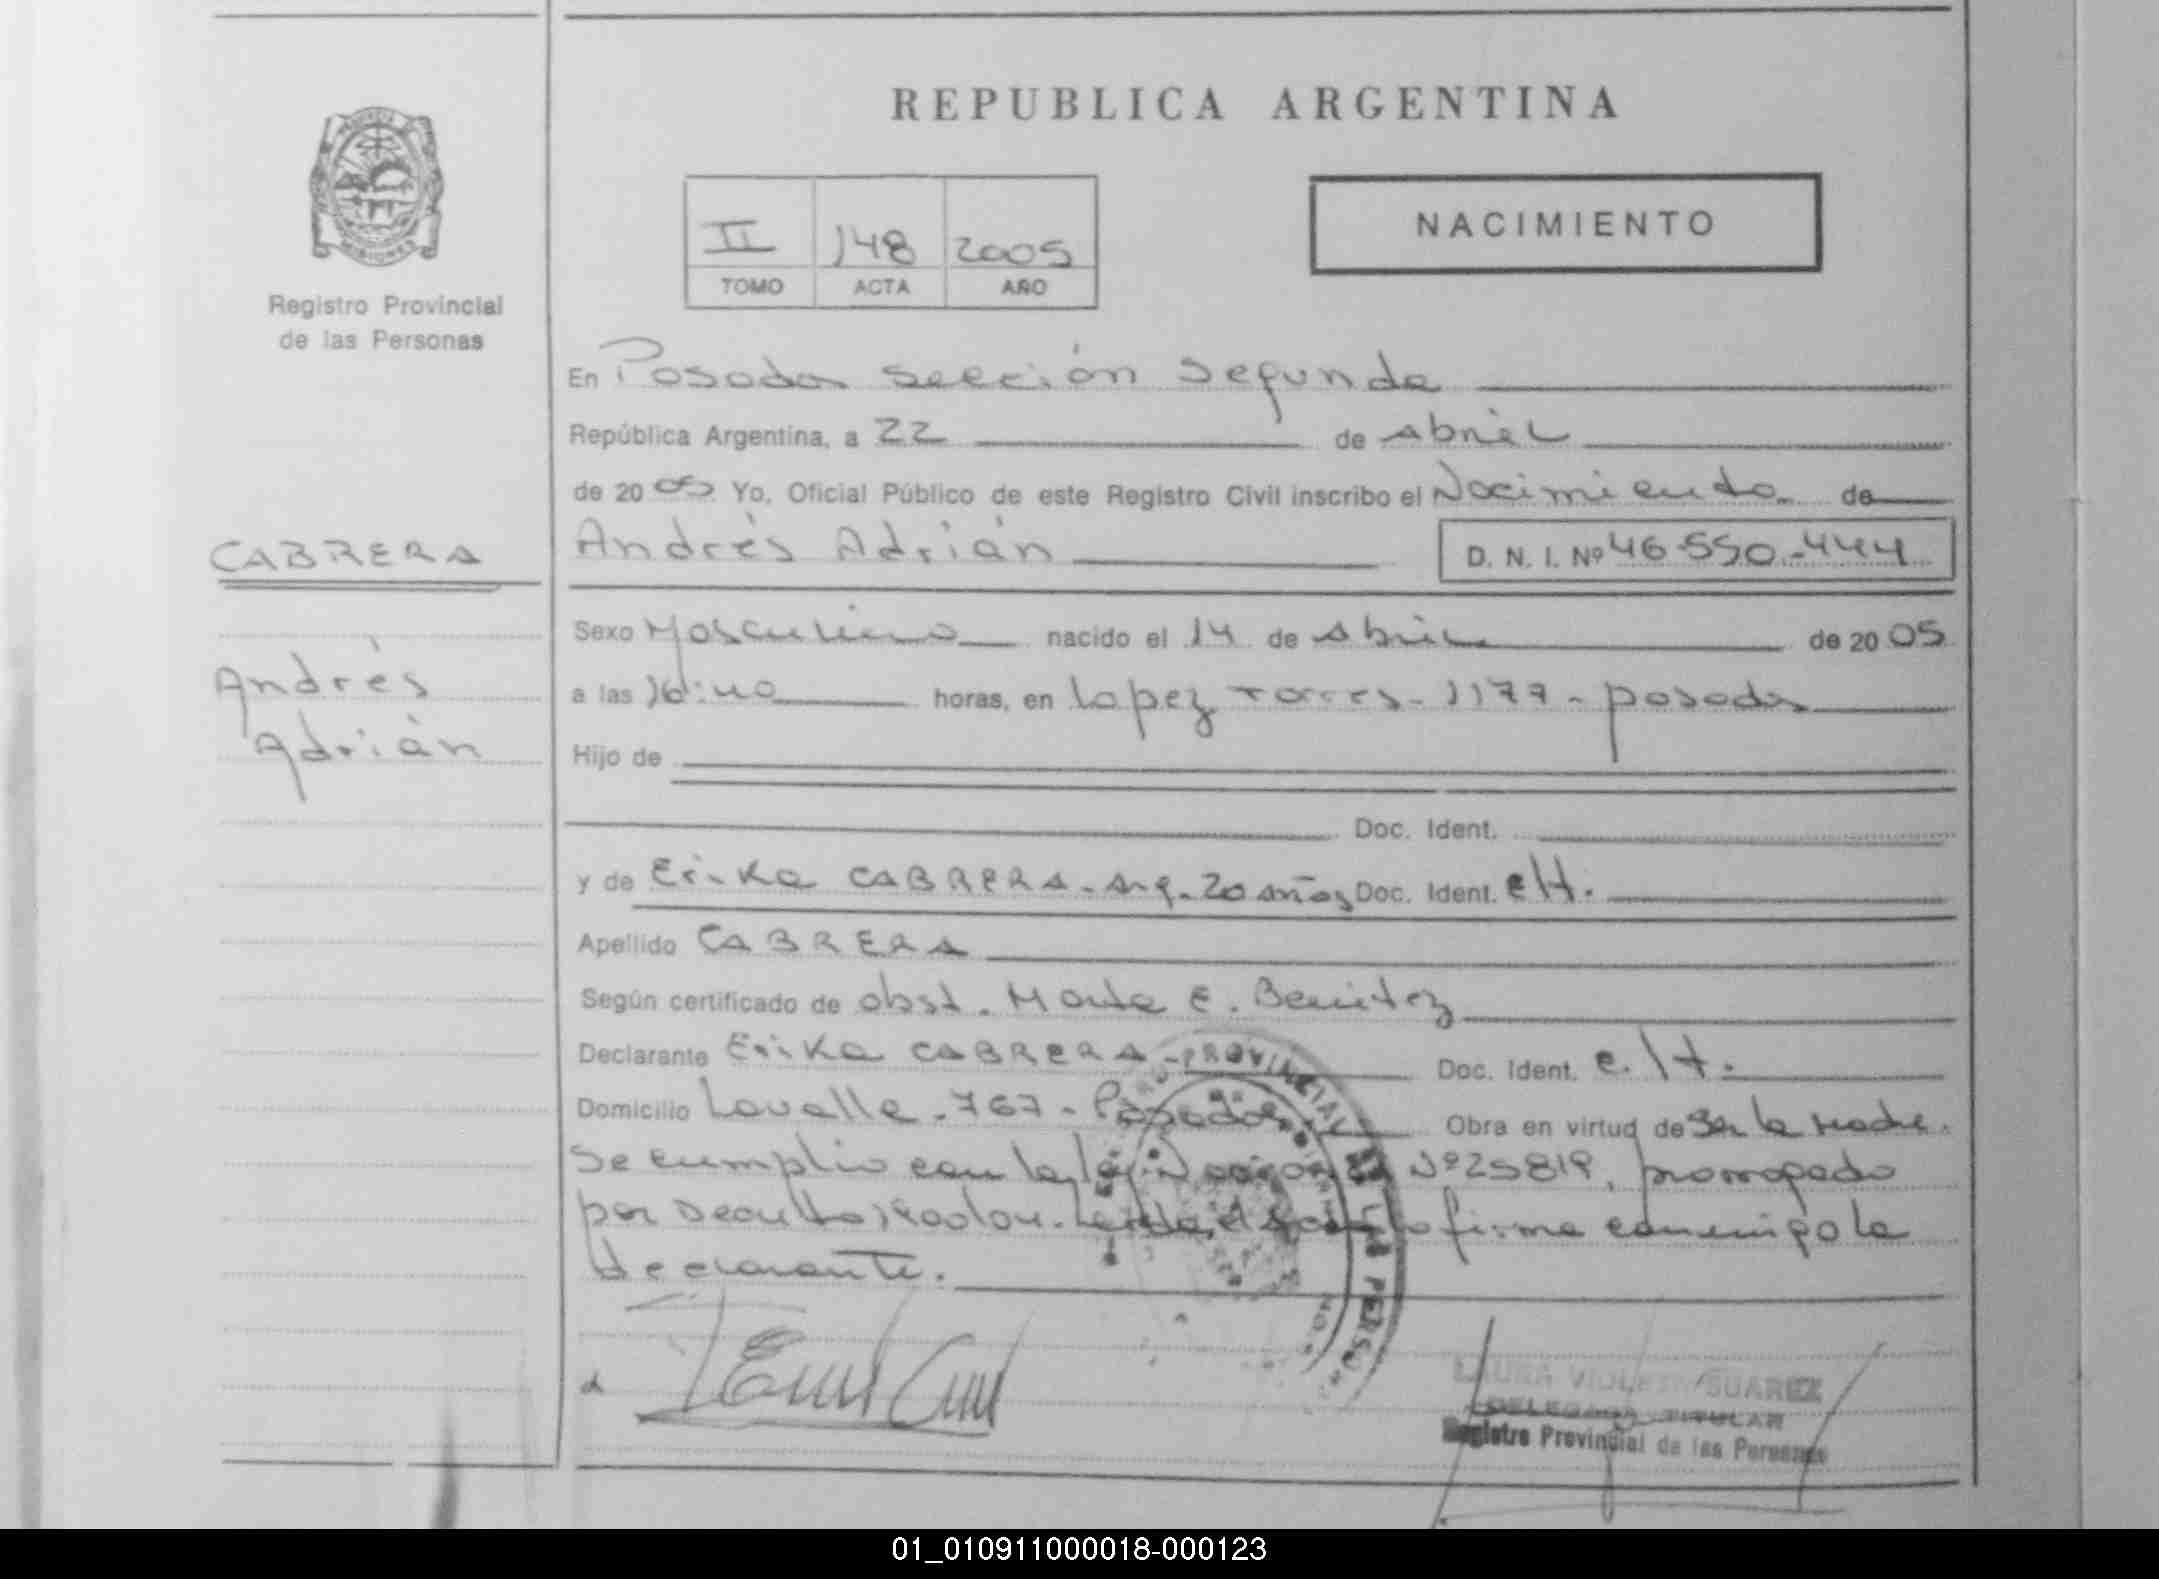 REPUBLICA ARGENTINA
NACIMIENTO
II 148 2005
TOMO ACTA AÑO
Registro Provincial
de las Personas
En Posadas sección segunda
República Argentina, a 22 de abril
de 2005 Yo, Oficial Público de este Registro Civil inscribo el Nacimiento de
CABRERA
Andrés Adrián
D. N. I. Nº 46.550.444
Sexo Masculino nacido el 14 de abril de 2005
Andrés
Adrián
a las 16:40 horas, en Lopez Torres - 1177 - posadas
Hijo de
Doc. Ident.
y de Erika CABRERA - arg. 20 años Doc. Ident. e/t.
Apellido CABRERA
Según certificado de obst. E. Benitez
Declarante Erika CABRERA Doc. Ident. e./t.
Domicilio Lavalle - 767 - Posadas Obra en virtud de ser la madre.
Se cumplio con la ley Nº 25819, prorrogado
por Decreto firma conmigo la
declarante.
PROVINCIAL
LAURA VIOLETA SUAREZ
DELEGADA TITULAR
Registro Provincial de las Personas
01_010911000018-000123